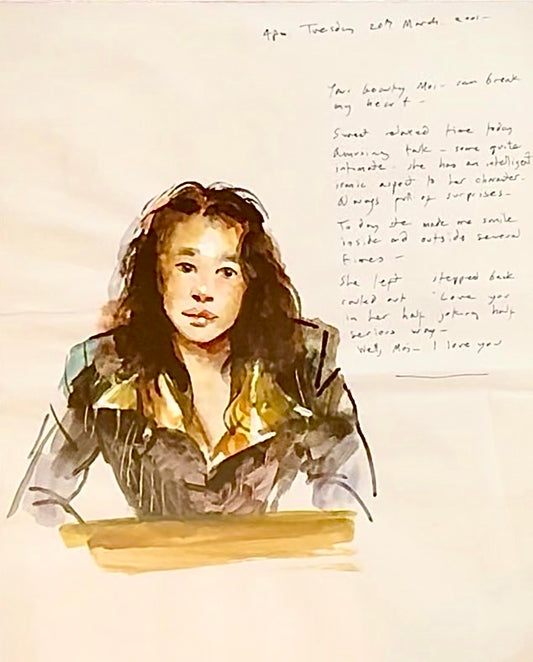 4pm Tuesday 20th March 2001 –
Your beauty Moi – can break
my heart –
Sweet relaxed time today
Amusing talk – some quite
intimate. She has an intelligent
ironic aspect to her character.
Always full of surprises –
Today she made me smile
inside and outside several
times –
She left stepped back
called out "Love you
in her half joking half
serious way –
Well, Moi – I love you